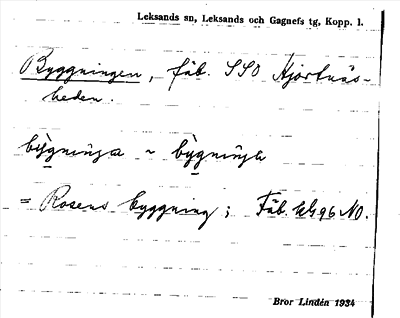 Leksands sn, Leksands och Gagnefs tg, Kopp. l.
Byggningen, fäb. SSO Hjortnäs-
heden.
bỳgniŋa ~ bỳgniŋa
= Rosens byggning; Fäb. 96 NO.
Bror Lindén 1934